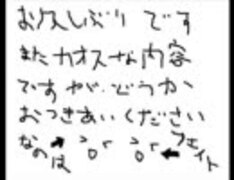 お久しぶりです
またカオスな内容
ですが、どうか
おつきあいください
なのは→
←フェイト